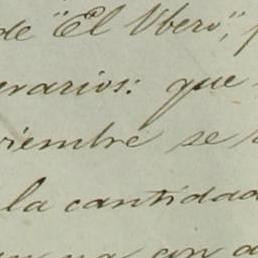 de "El Ubero",
erarios: que
viembre se
la cantidad
con